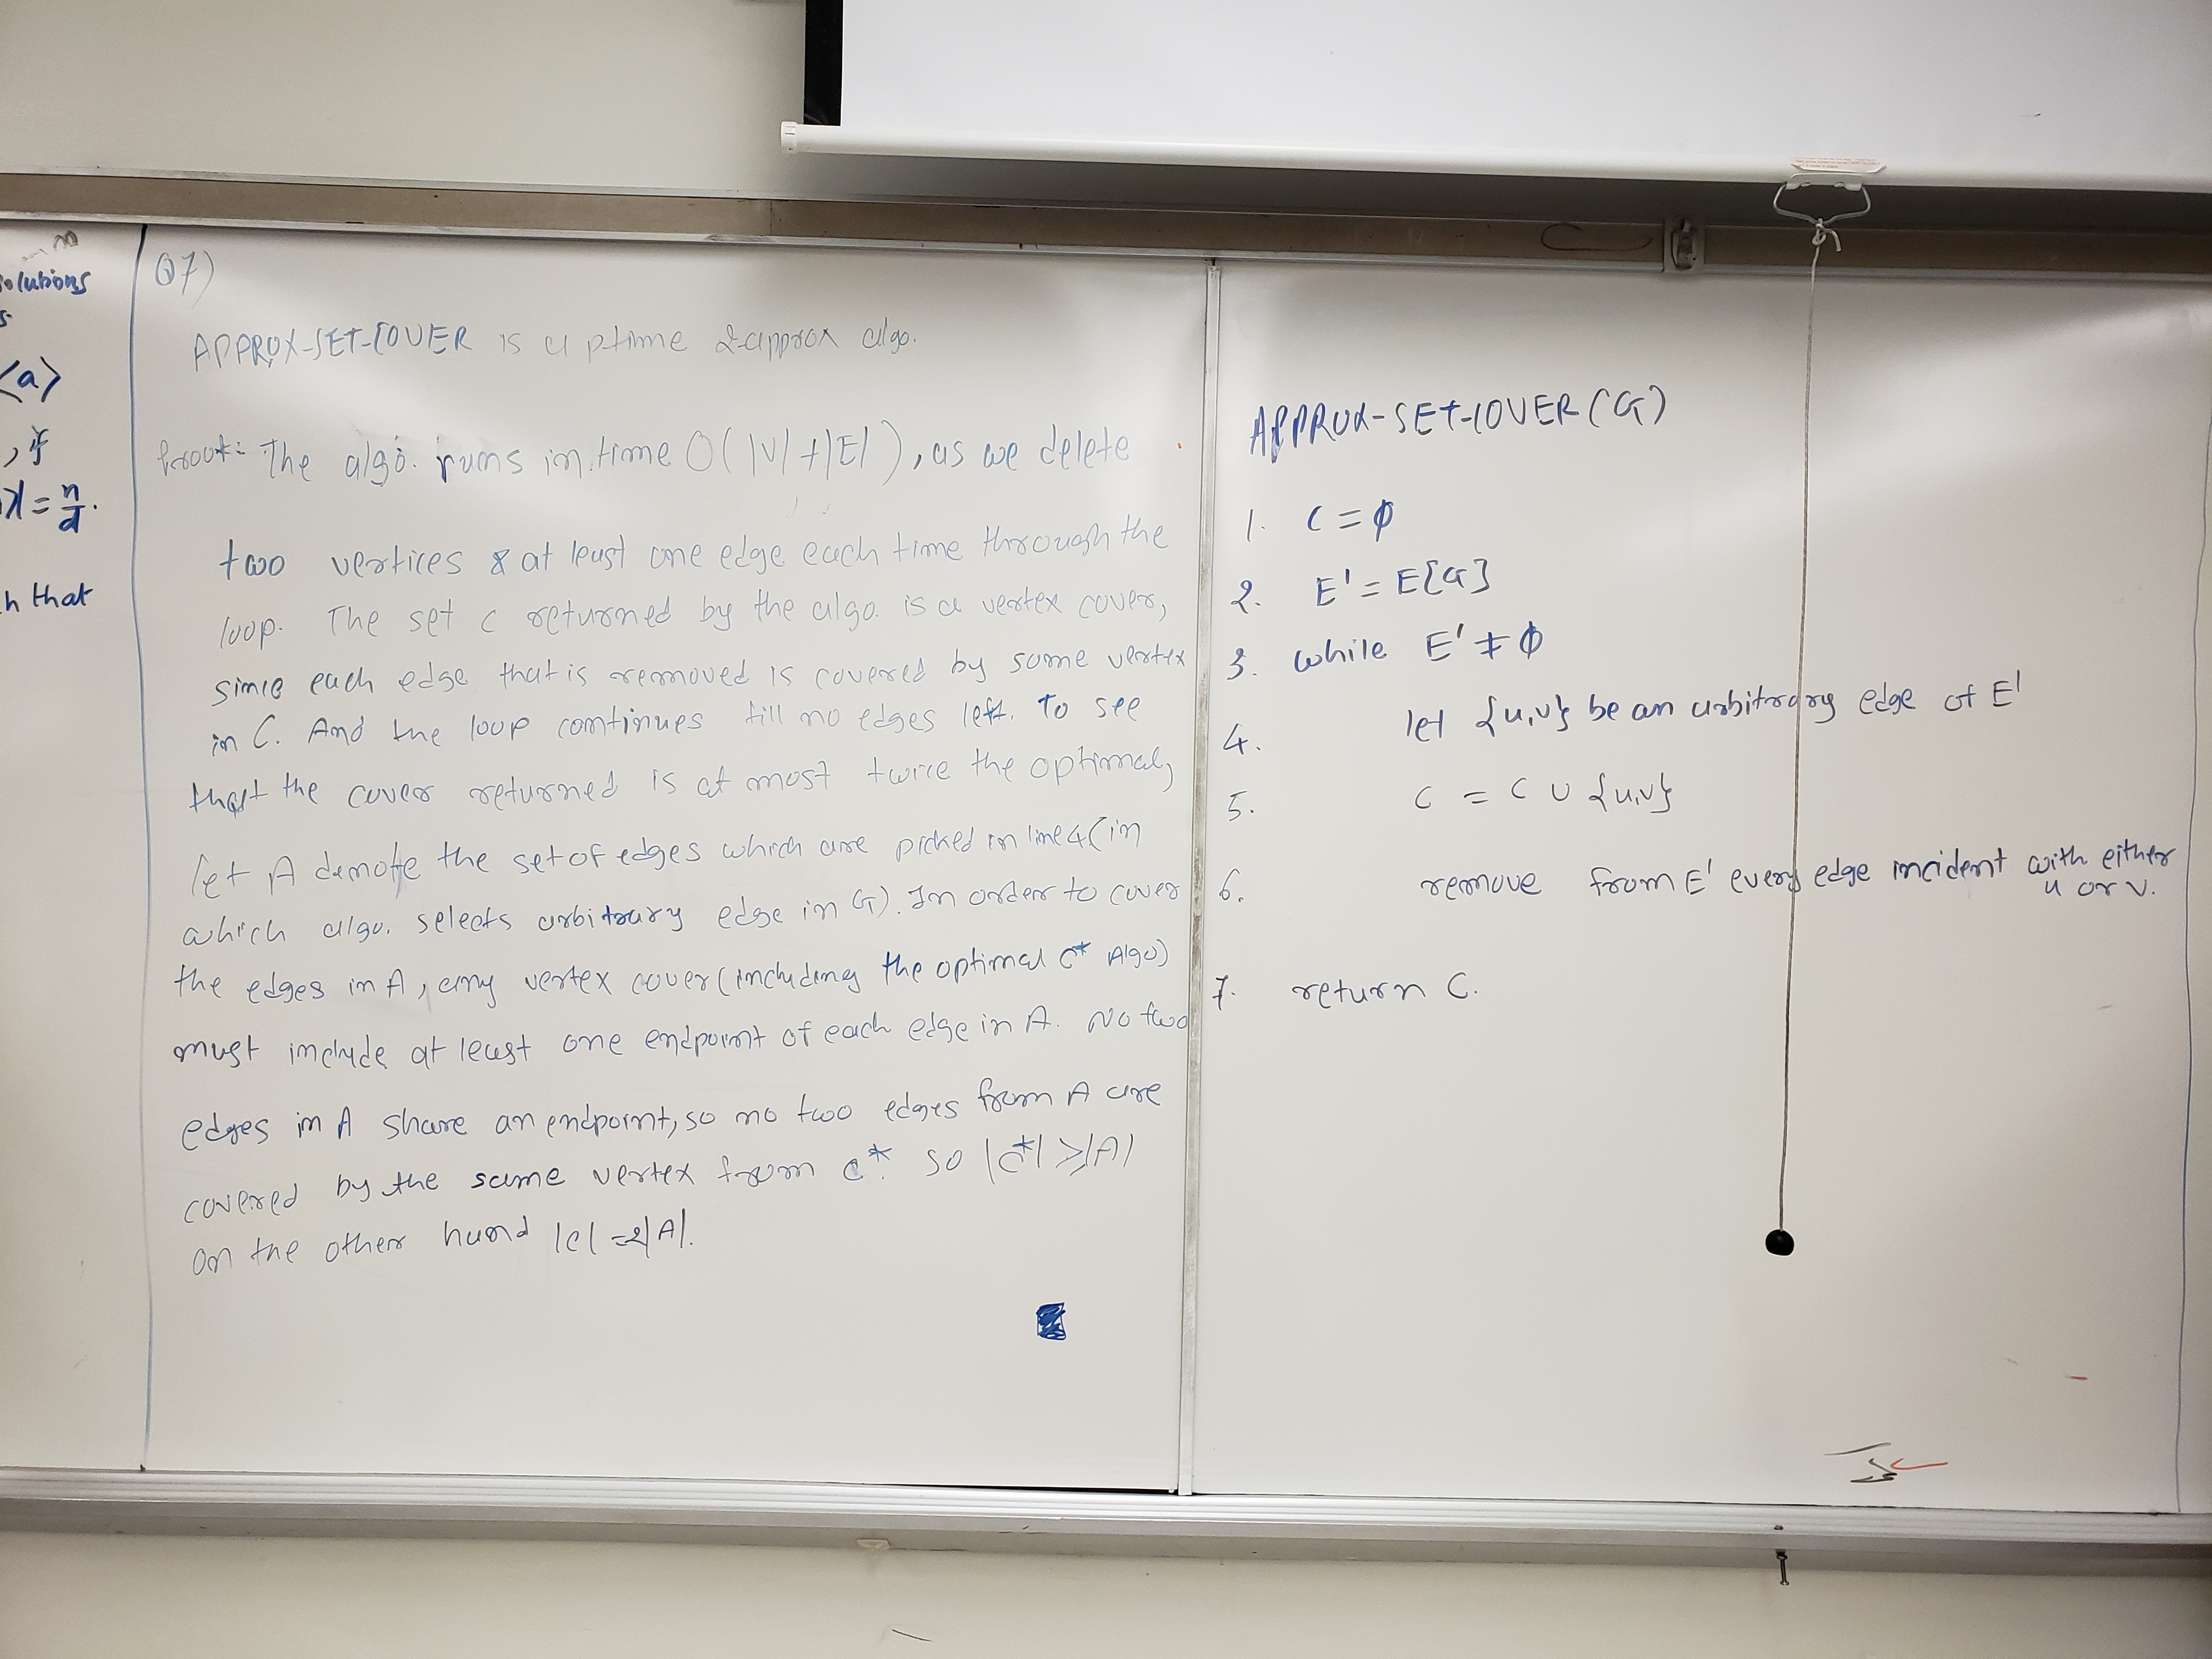 solutions
<a>
, if
= n/d.
h that
Q7)
APPROX-SET-COVER is a ptime 2-approx algo.
Proof: The algo. runs in time O(|V|+|E|), as we delete
two vertices & at least one edge each time through the
loop. The set C returned by the algo. is a vertex cover,
since each edge that is removed is covered by some vertex
in C. And the loop continues till no edges left. To see
that the cover returned is at most twice the optimal,
let A denote the set of edges which are picked in line 4 (in
which algo. selects arbitrary edge in G). In order to cover
the edges in A, any vertex cover (including the optimal C* Algo)
must include at least one endpoint of each edge in A. No two
edges in A share an endpoint, so no two edges from A are
covered by the same vertex from C*. so |C*| ≥ |A|
on the other hand |C| = 2|A|.
APPROX-SET-COVER(G)
1. C = ϕ
2. E' = E[G]
3. while E' ≠ ϕ
4. let {u,v} be an arbitrary edge of E'
5. C = C ∪ {u,v}
6. remove from E' every edge incident with either
u or v.
7. return C.